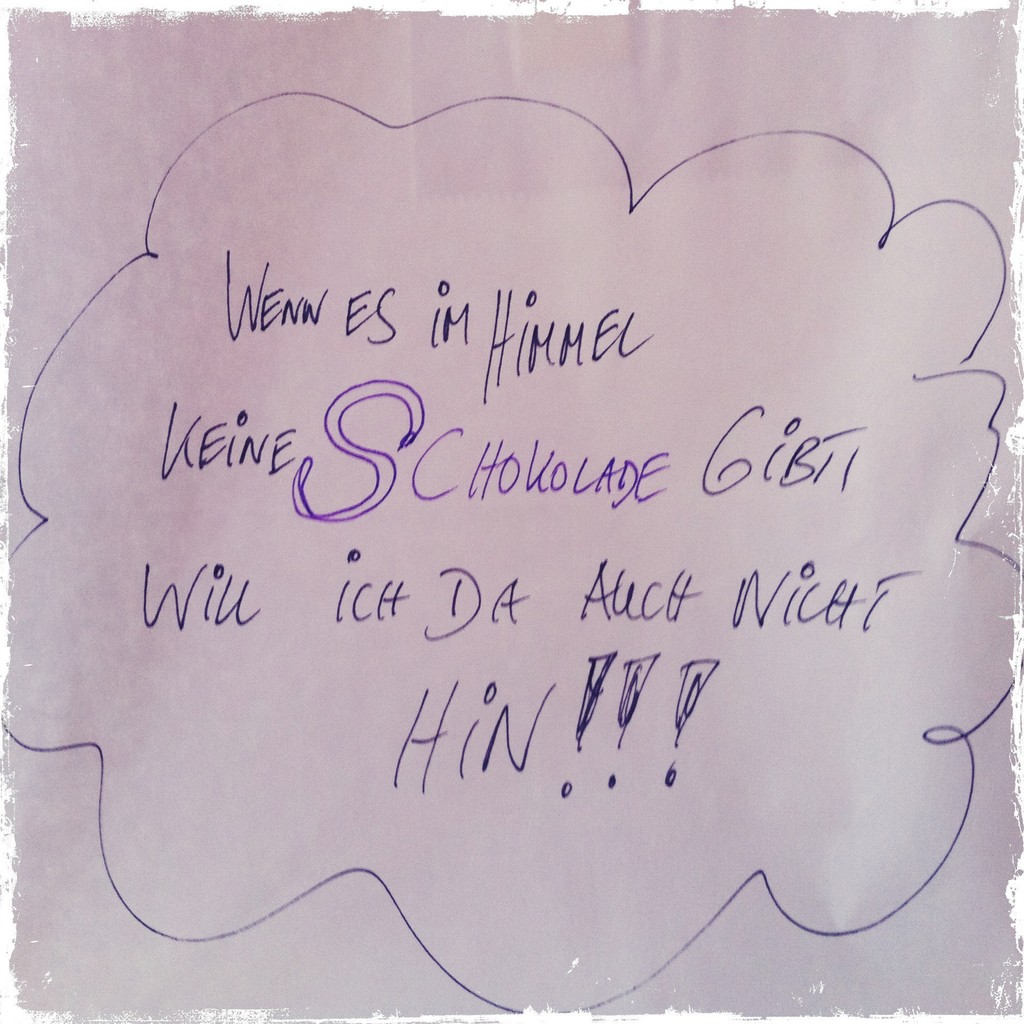 WENN ES iM HiMMEL
KEiNE SCHOKOLADE GiBT,
WiLL iCH DA AUCH NiCHT
HiN!!!